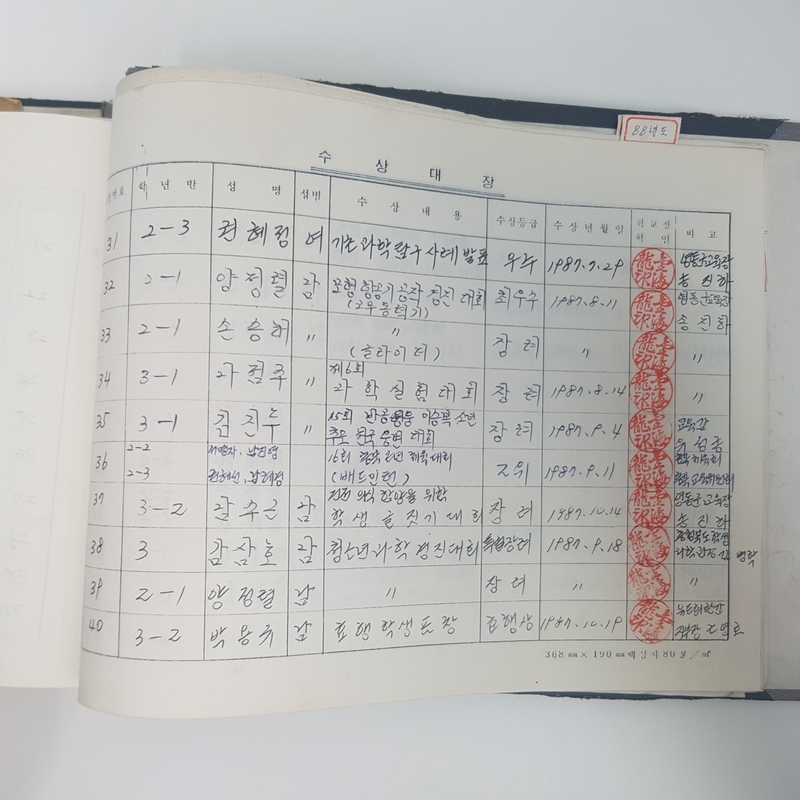 88년도
수 상 대 장
번호 학 년 반 성 명 성별 수 상 내 용 수상등급 수 상 년 월 일 학교장 확인 비 고
31 2-3 권혜정 여 기초과학탐구사례발표 우수 1987.7.29 영동군교육장
송진하
32 2-1 양정렬 남 모형항공기공작경진대회 최우수 1987.8.11 영동군교육장
(고무동력기) 송진하
33 2-1 손승 〃 〃 장려 〃 〃
(글라이더)
34 3-1 〃 제6회
과학실험대회 장려 1987.8.14 〃
35 3-1 김진수 〃 15회 반공영웅 이승복 소년 교육감
추모 전국 웅변 대회 장려 1987.9.4
2-2
36 16회 충북소년체육대회
2-3 (배드민턴) 1987.9.11
37 3-2 남 의식 함양을 위한 영동군교육장
학생글짓기대회 장려 1987.10.14 송진하
38 3 김삼호 남 청소년과학경진대회 장려 1987.9.18 충청북도학생
과학관장
39 2-1 양정렬 남 〃 장려 〃 〃
40 3-2 박용 남 효행학생표창 효행상 1987.10.19
368㎜×190㎜ 백상지 80g/㎡